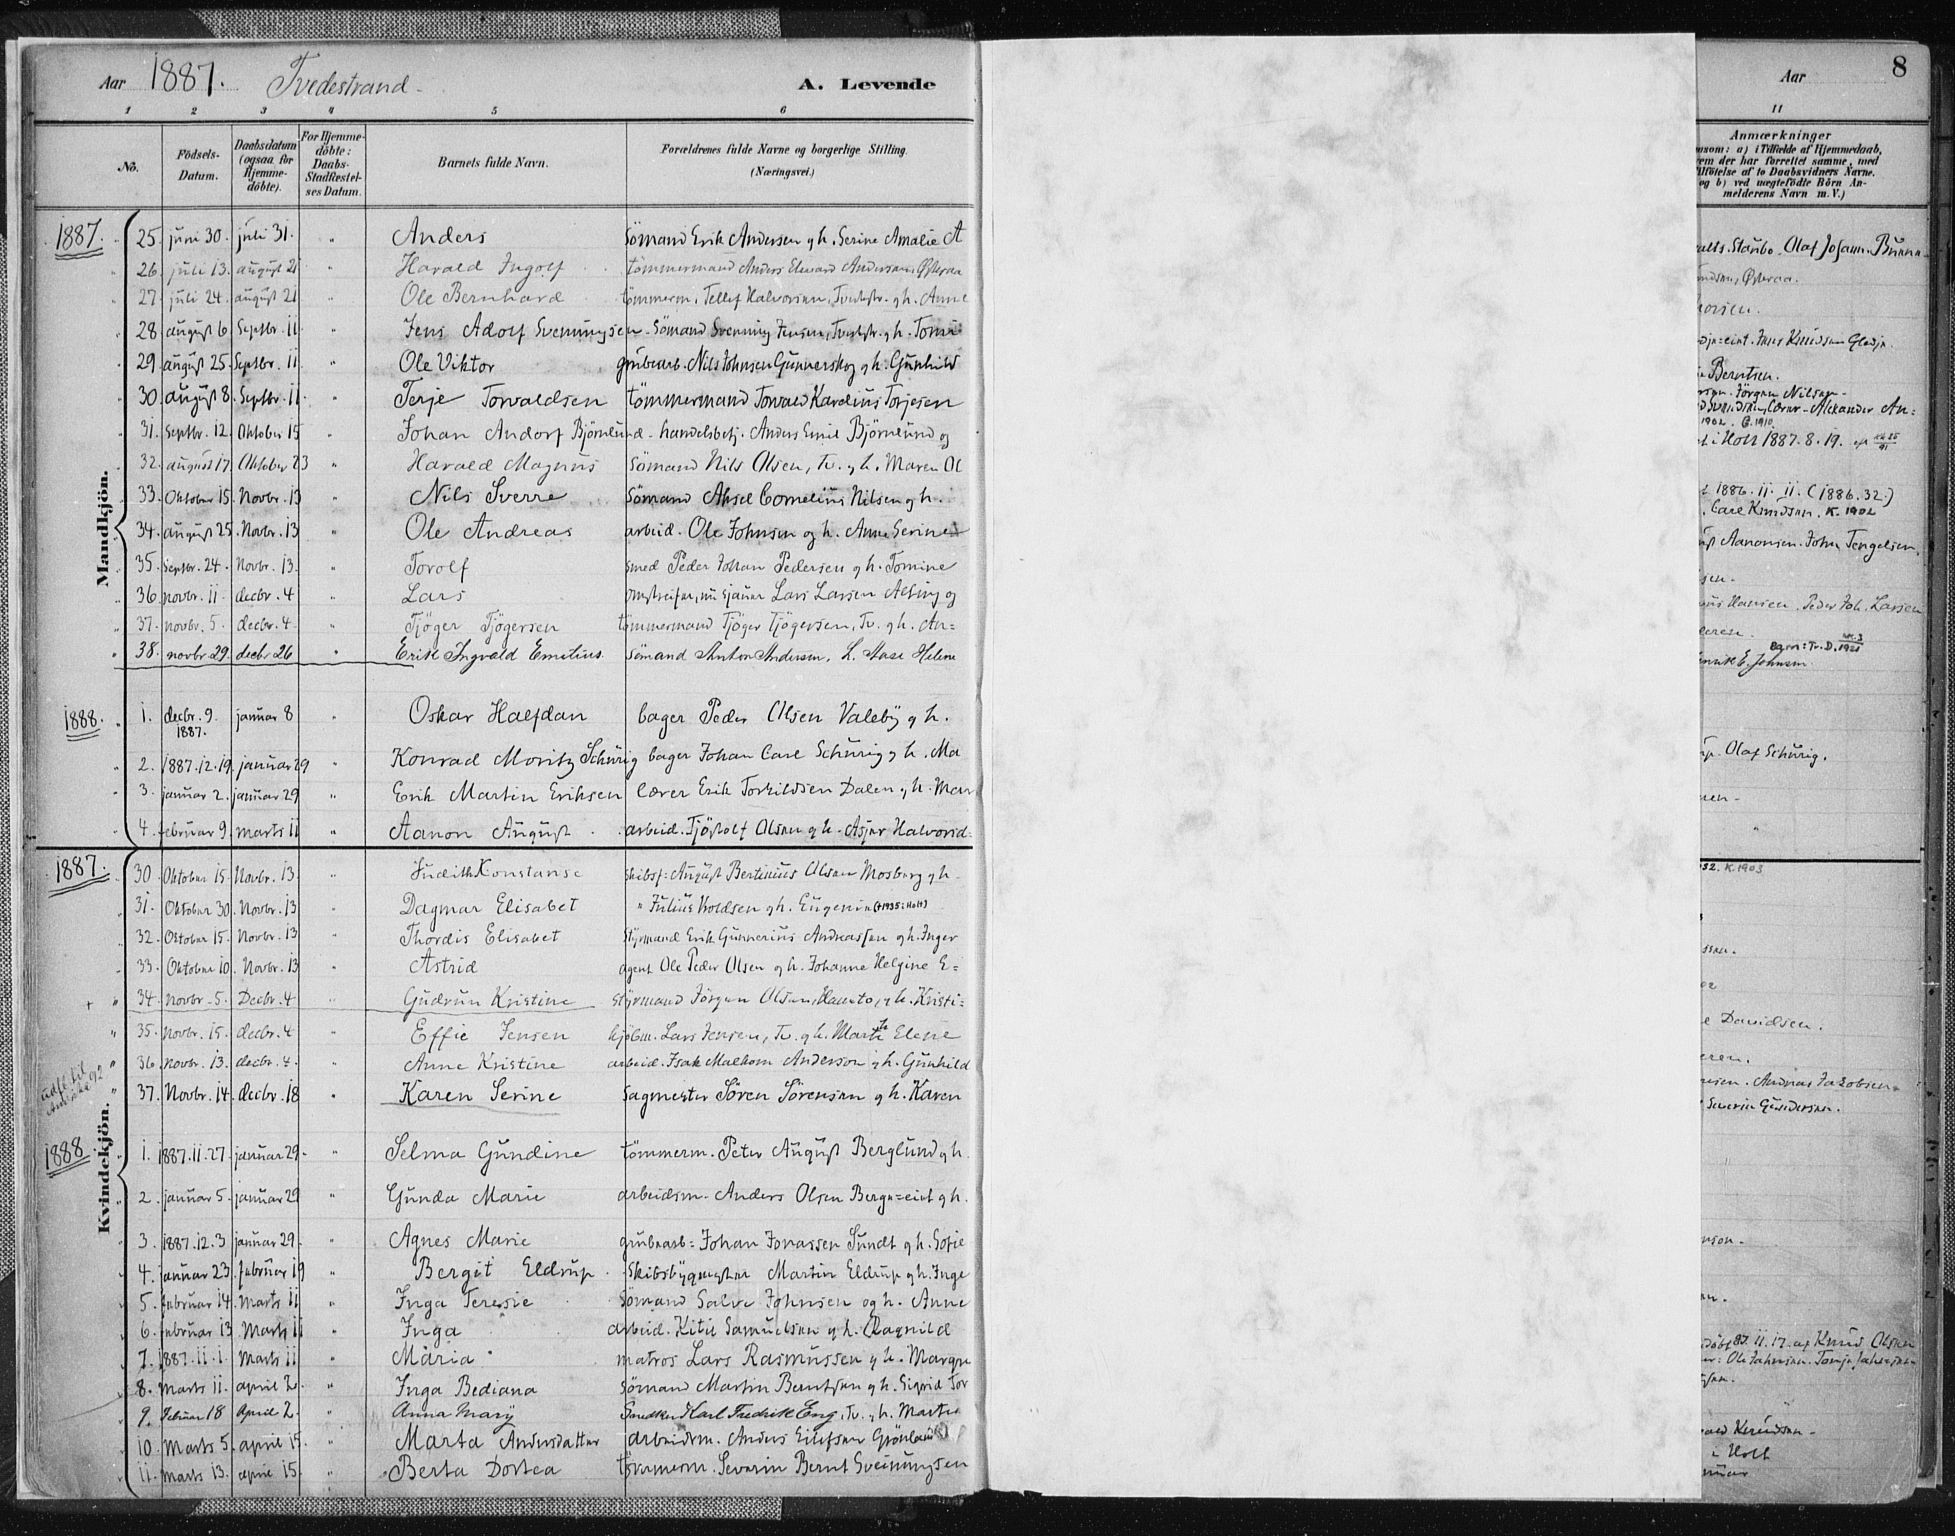 Aar 1887. Tvedestrand. A. Levende
1 2 3 4 5 6
No. Födsels-Datum. Daabsdatum (ogsaa for Hjemmedöbte). For Hjemmedöbte: Daabs-Stadfæstelses Datum. Barnets fulde Navn. Forældrenes fulde Navne og borgerlige Stilling. (Næringsvei.)
Mandkjön.
1887. 25. juni 30. juli 31. " Anders Sömand Erik Andersen og h. Serine Amalie A
" 26. juli 13. august 21 " Harald Ingolf tömmermand Anders Edvard Andersen, Østeraa
" 27. juli 24. august 21 " Ole Bernhard tömmerm. Tellef Halvorsen, Tvedestr. og h. Anne
" 28. august 6 Septbr. 11. " Jens Adolf Svenningsen - Sömand Svenning Jensen, Tvedstr. og h. Tomi
" 29. august 25. Septbr. 11 " Ole Viktor grubearb. Nils Johnsen Gunnerskog og h. Gunhild
" 30. august 8. Septbr. 11. " Terje Torvaldsen tömmermand Torvald Karelius Torjesen
" 31. Septbr. 12. Oktober 15 " Johan Andorf Björnlund - handelsbetj. Anders Emil Björnlund og
" 32. august 17. Oktober 23 " Harald Magnus Sömand Nils Olsen, Tv. og h. Maren Ol
" 33. Oktober 15. Novbr. 13 " Nils Sverre Sömand Aksel Cornelius Nilsen og h.
" 34. august 25. Novbr. 13 " Ole Andreas arbeid. Ole Johnsen og h. Anne Serine
" 35. Septbr. 24. Novbr. 13. " Torolf smed Peder Johan Pedersen og h. Tomine
" 36. novbr. 11. decbr. 4 " Lars omstreifer, nu sjauer Lars Larsen Alting og
" 37. novbr. 5. decbr. 4. " Tjöger Tjögersen tömmermand Tjöger Tjögersen, Tv. og h. An=
" 38. novbr. 29. decbr. 26 " Erik Ingvald Emelius. Sömand Anton Andersen, L. Aase Helene
1888. " 1. decbr. 9. 1887. januar 8 " Oskar Halfdan bager Peder Olsen Valeby og h.
" 2. 1887.12.19. januar 29 " Konrad Moritz Schurig bager Johan Carl Schurig og h. Ma
" 3. januar 2. januar 29 " Erik Martin Eriksen lærer Erik Torkildsen Dalen og h. Mar
" 4. februar 9. marts 11 " Aanon August arbeid. Tjöstolf Olsen og h. Asjer Halvorsd.
Kvindekjön.
1887. 30. Oktober 15. Novbr. 13. " Judith Konstanse skibsf: August Bertinius Olsen Mosberg og h.
" 31. Oktober 30. Novbr. 13 " Dagmar Elisabet " Julius Holdsen og h. Eugenia (+1935: Holt)
" 32. Oktober 15. Novbr. 13 " Thordis Elisabet Styrmand Erik Gunnerius Andreassen og h. Inger
" 33. Oktober 10. Novbr. 13 " Astrid agent Ole Peder Olsen og h. Johanne Helgine E=
+ " 34. Novbr. 5. Decbr. 4 " Gudrun Kristine Styrmand Jörgen Olsen, og h. Kristi=
" 35. Novbr. 15. decbr. 4 " Effie Jensen kjöbm. Lars Jensen, Tv. og h. Marthe Elene
" 36. Novbr. 13. decbr. 4. " Anne Kristine arbeid. Isak Malkom Anderson og h. Gunhild
udfl. til 92
" 37. Novbr. 14. decbr. 18 " Karen Serine Sagmester Sören Sörensen og h. Karen
1888. " 1. 1887.11.27. januar 29. " Selma Gundine tömmerm. Peter August Berglund og h.
" 2. januar 5. januar 29 " Gunda Marie arbeidsm. Anders Olsen Berge=eiet og h.
" 3. 1887.12.3 januar 29. " Agnes Marie grubearb: Johan Jonassen Sundt og h. Sofie
" 4. januar 23. februar 19 " Bergit Eldrup. Skibsbygmester Martin Eldrup og h. Inge
" 5. februar 14. Marts 11 " Inga Teresie Sömand Salve Johnsen og h. Anne
" 6. februar 13 Marts 11 " Inga arbeid. Kitil Samuelsen og h. Ragnild
" 7. 1887.11.1. Marts 11 " Maria matros Lars Rasmussen og h. Margre
" 8. Marts 11. april 2. " Inga Bediana Sömand Martin Berntsen og h. Sigrid Tor
" 9. Februar 18 April 2. " Anna Mary Snedker Karl Fredrik Eng, Tv. og h. Marta
" 10. Marts 5. april 15. " Marta Andersdatter arbeidsm. Anders Eilefsen Grönland
" 11. Marts 13. april 15. " Berta Dortea tömmerm. Severin Bernt Sveinungsen
Aar 8
11
Anmærkninger
(saasom: a) i Tilfælde af Hjemmedaab,
hvem der har forrettet samme, med
Tilföielse af to Daabsvidners Navne.
og b) ved uægtefödte Börn An-
melderens Navn m. V.)
Olaf Johann. Bunn
Østeraa.
Jens Knudsen Gledje.
Berntsen.
Jörgen Nilsen.
Alexander An=
1902. G. 1910.
i Holt 1887. 8. 19.
1886. 11. 11. (1886. 32.)
Carl Knudsen. K. 1902
Aanonsen. John Tengelsen.
Hansen. Peder Joh. Larsen
Tv. D. 1921
E. Johnsen.
Olaf Schurig.
K. 1903
Davidsen.
Andreas Jakobsen
Severin Gundersen.
87. 11. 17. af Knud Olsen
Knudsen.
i Holt